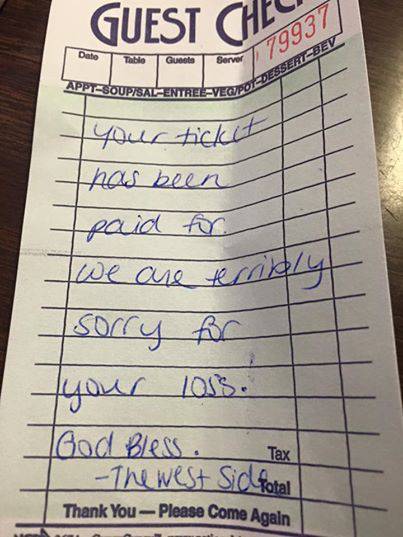 GUEST CHECK
79937
Date Table Guests Server
APPT-SOUP/SAL-ENTREE-VEG/POT-DESSERT-BEV
your ticket
has been
paid for.
we are terribly
sorry for
your loss!
God Bless.
Tax
-The West Side
Total
Thank You — Please Come Again